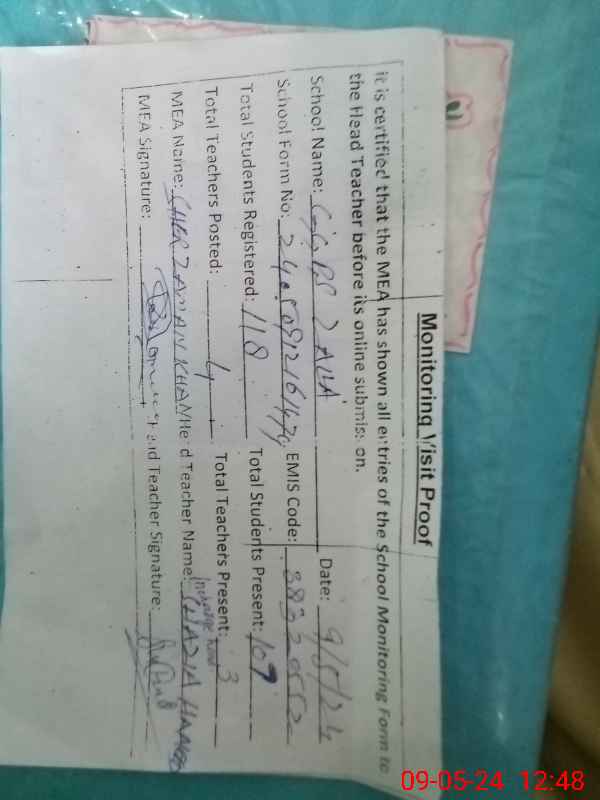 Monitoring Visit Proof
it is certified that the MEA has shown all entries of the School Monitoring Form to
the Head Teacher before its online submission.
School Name: GGPS ZALLA Date: 9/5/24
School Form No: EMIS Code:
Total Students Registered: 118 Total Students Present: 107
Total Teachers Posted: 4 Total Teachers Present: 3
Including head
MEA Name: SHER ZAMAN KHAN Head Teacher Name:
MEA Signature: Head Teacher Signature:
09-05-24 12:48